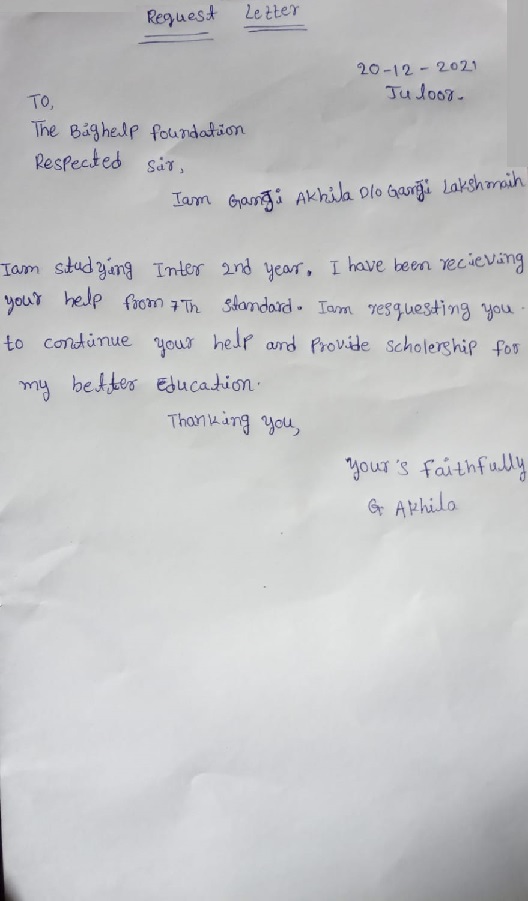 Request Letter
20-12-2021
Juloor.
To,
The Bighelp foundation
Respected sir,
Iam Gangi Akhila D/o Gangi Lakshmaih
Iam studying Inter 2nd year. I have been recieving
your help from 7Th standard. Iam resquesting you
to continue your help and Provide scholership for
my better Education.
Thanking you,
your's faithfully
G Akhila